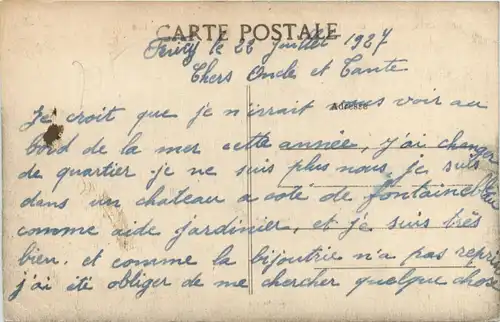 CARTE POSTALE
Féricy le 22 juillet 1927
Chers Oncle et Tante
Adresse
Je croit que je n'irrait vous voir au
bord de la mer cette année, j'ai changer
de quartier. je ne suis plus nous, je suis
dans un chateau a coté de fontainebleau
comme aide jardinier, et je suis très
bien. et comme la bijoutrie n'a pas repris
j'ai été obliger de me chercher quelque chose